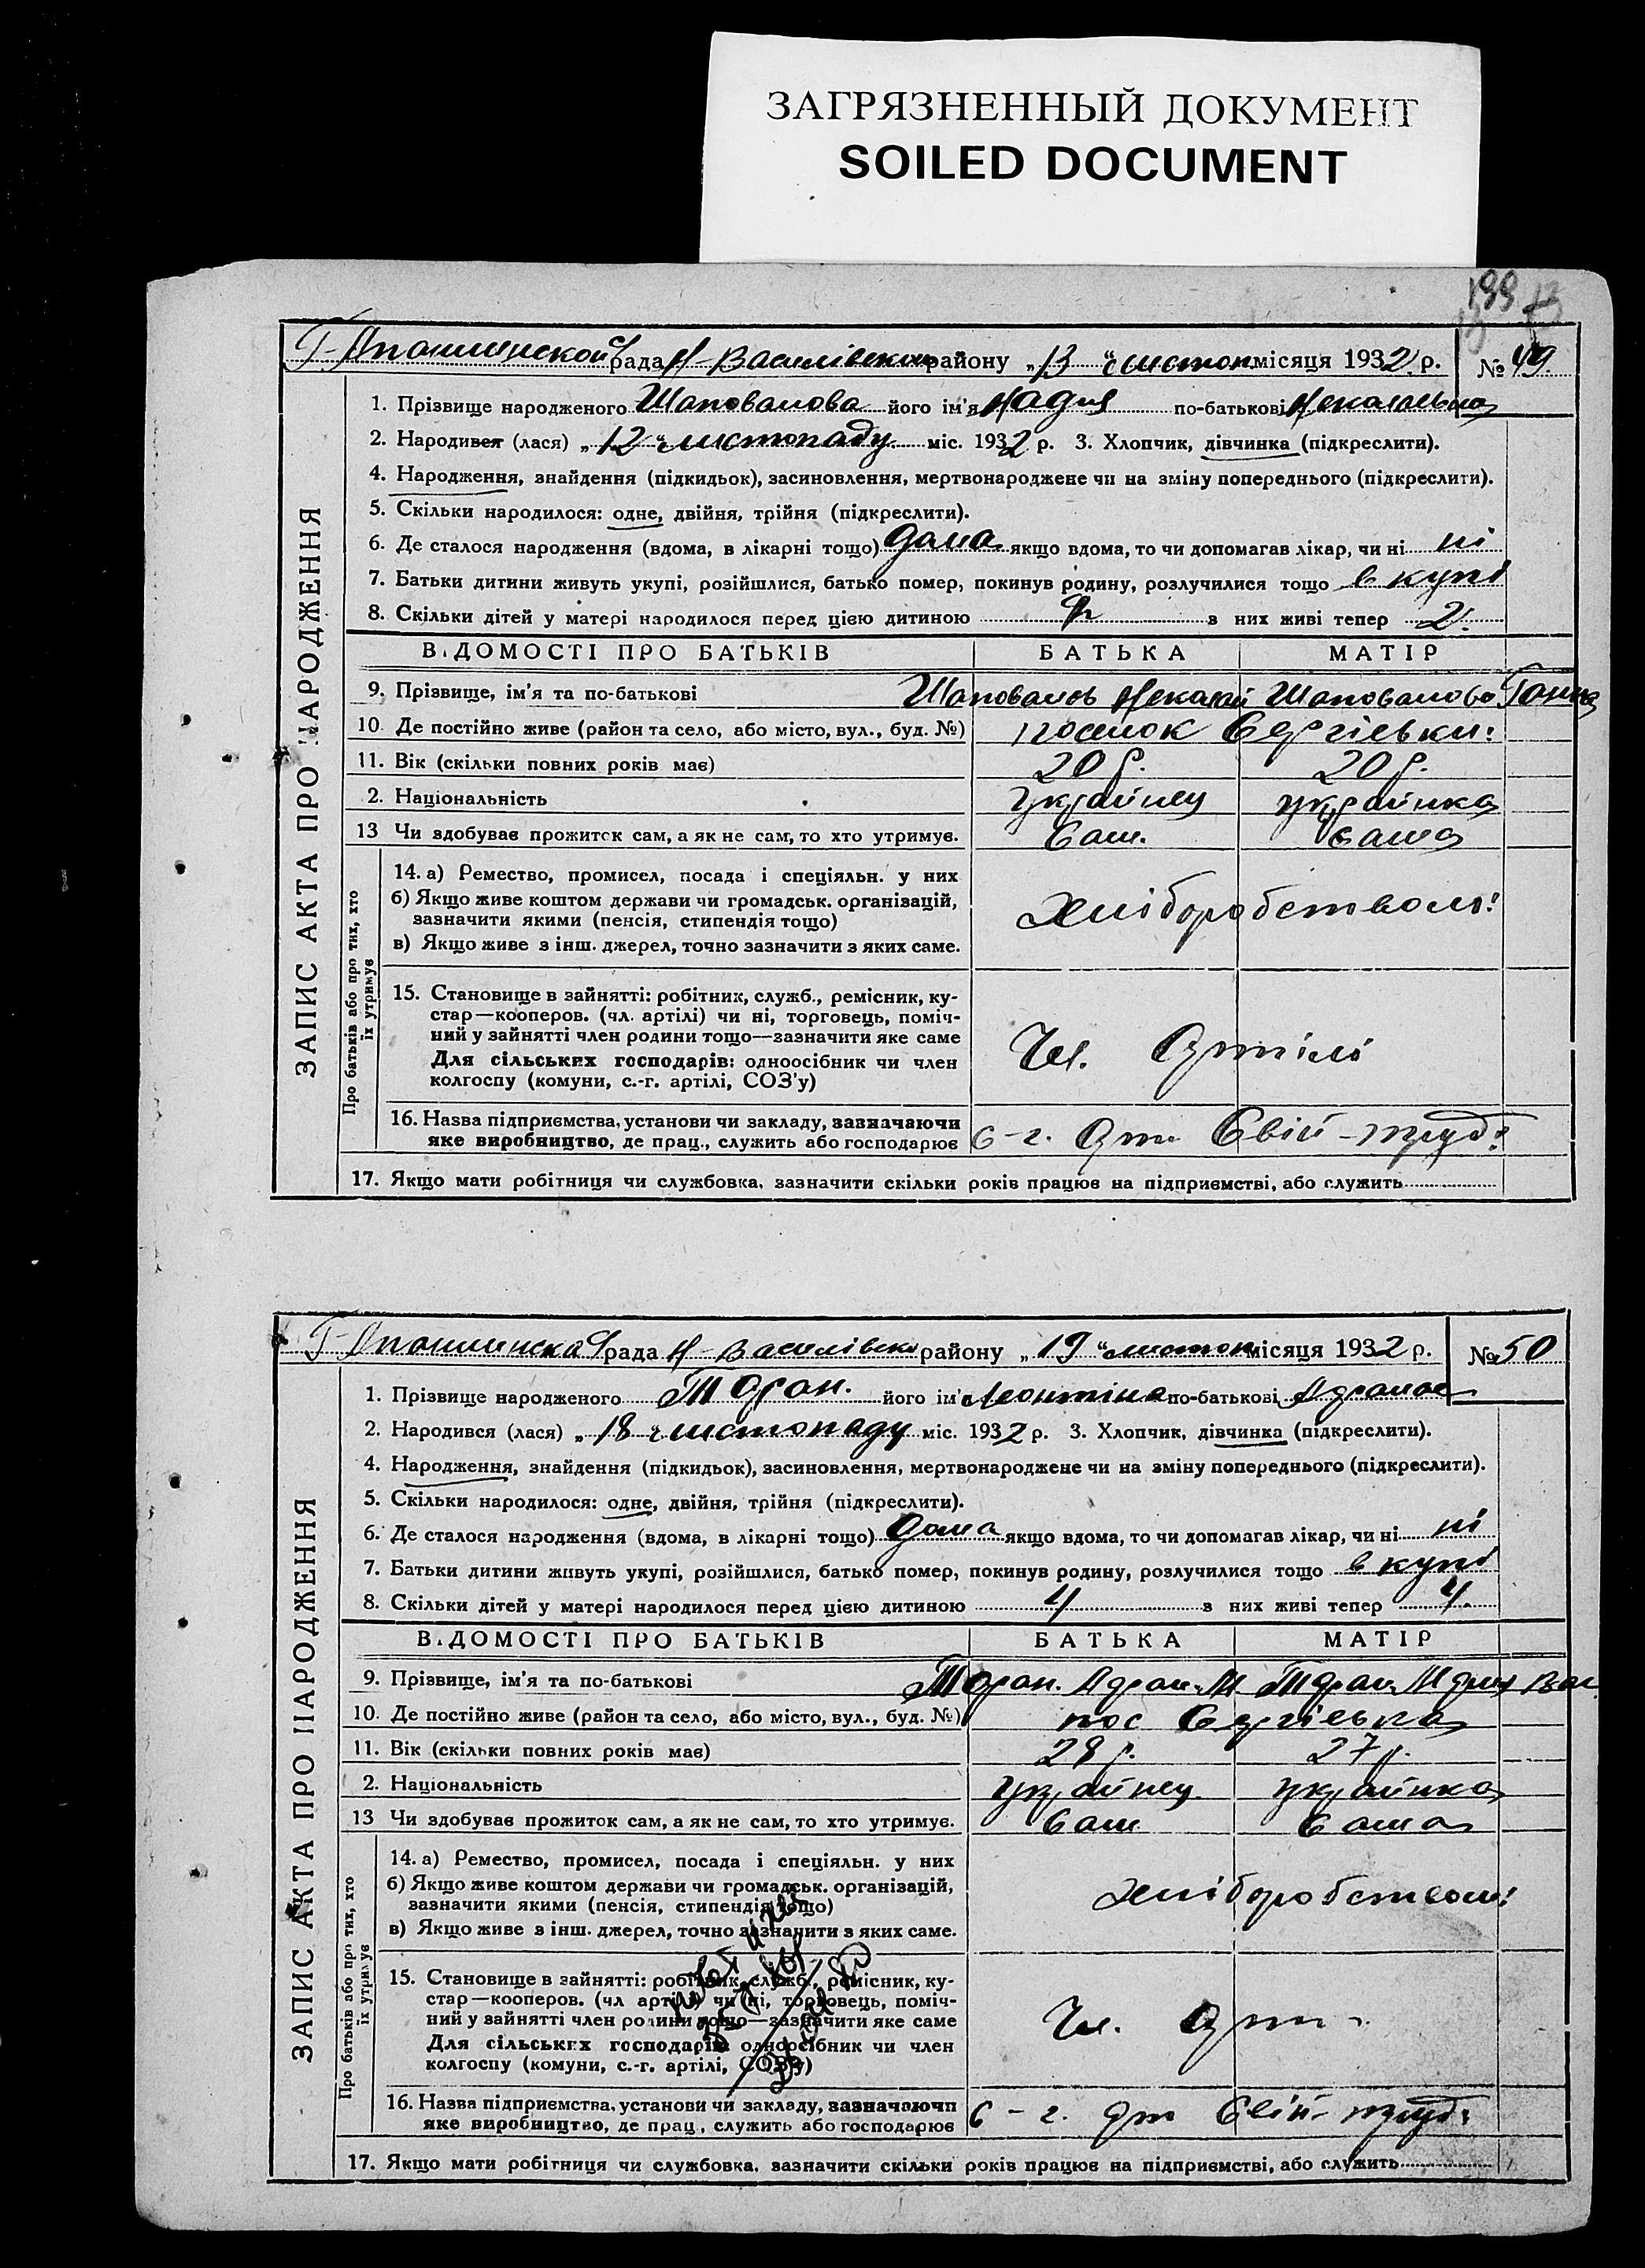 ЗАГРЯЗНЕННЫЙ ДОКУМЕНТ
SOILED DOCUMENT
рада Н-Василівськ району „13“ листоп місяця 1932 р. № 49.
ЗАПИС АКТА ПРО НАРОДЖЕННЯ
1. Прізвище народженого Шаповалова його ім'я Надия по-батькові
2. Народився (лася) „12“ листопаду міс. 1932 р. 3. Хлопчик, дівчинка (підкреслити).
4. Народження, знайдення (підкидьок), засиновлення, мертвонароджене чи на зміну попереднього (підкреслити).
5. Скільки народилося: одне, двійня, трійня (підкреслити).
6. Де сталося народження (вдома, в лікарні тощо) дома якщо вдома, то чи допомагав лікар, чи ні ні
7. Батьки дитини живуть укупі, розійшлися, батько помер, покинув родину, розлучилися тощо в купі
8. Скільки дітей у матері народилося перед цією дитиною з них живі тепер 2.
ВІДОМОСТІ ПРО БАТЬКІВ БАТЬКА МАТІР
9. Прізвище, ім'я та по-батькові Шаповалов Шаповалова Ганна
10. Де постійно живе (район та село, або місто, вул., буд. №) посилок Сергієвки:
11. Вік (скільки повних років має) 20 р. 20 р.
2. Національність українец українка
13 Чи здобуває прожиток сам, а як не сам, то хто утримує. Сам. сама
Про батьків або про тих, хто їх утримує
14. а) Ремество, промисел, посада і спеціяльн. у них
б) Якщо живе коштом держави чи громадськ. організацій,
зазначити якими (пенсія, стипендія тощо) хліборобством:
в) Якщо живе з інш. джерел, точно зазначити з яких саме.
15. Становище в зайнятті: робітник, служб., ремісник, ку-
стар—кооперов. (чл. артілі) чи ні, торговець, поміч-
ний у зайнятті член родини тощо—зазначити яке саме
Для сільських господарів: одноосібник чи член Чл. Артілі
колгоспу (комуни, с.-г. артілі, СОЗ'у)
16. Назва підприємства, установи чи закладу, зазначаючи
яке виробництво, де прац., служить або господарює С-г. Арт. Свій-труд:
17. Якщо мати робітниця чи службовка, зазначити скільки років працює на підприємстві, або служить
рада Н-Василівськ району „19“ листоп місяця 1932 р. № 50
ЗАПИС АКТА ПРО НАРОДЖЕННЯ
1. Прізвище народженого Таран. його ім'я по-батькові
2. Народився (лася) „18“ листопаду міс. 1932 р. 3. Хлопчик, дівчинка (підкреслити).
4. Народження, знайдення (підкидьок), засиновлення, мертвонароджене чи на зміну попереднього (підкреслити).
5. Скільки народилося: одне, двійня, трійня (підкреслити).
6. Де сталося народження (вдома, в лікарні тощо) Дома якщо вдома, то чи допомагав лікар, чи ні ні
7. Батьки дитини живуть укупі, розійшлися, батько помер, покинув родину, розлучилися тощо в купі
8. Скільки дітей у матері народилося перед цією дитиною 4 з них живі тепер 4.
ВІДОМОСТІ ПРО БАТЬКІВ БАТЬКА МАТІР
9. Прізвище, ім'я та по-батькові Таран. М Таран
10. Де постійно живе (район та село, або місто, вул., буд. №) пос Сергієвка
11. Вік (скільки повних років має) 28 р. 27 р.
2. Національність українец українка
13 Чи здобуває прожиток сам, а як не сам, то хто утримує. Сам Сама
Про батьків або про тих, хто їх утримує
14. а) Ремество, промисел, посада і спеціяльн. у них
б) Якщо живе коштом держави чи громадськ. організацій, хліборобством:
зазначити якими (пенсія, стипендія тощо)
в) Якщо живе з інш. джерел, точно зазначити з яких саме.
15. Становище в зайнятті: робітник, служб., ремісник, ку-
стар—кооперов. (чл артілі) чи ні, торговець, поміч-
ний у зайнятті член родини тощо—зазначити яке саме Чл. Арт.
Для сільських господарів: одноосібник чи член
колгоспу (комуни, с.-г. артілі, СОЗ'у)
16. Назва підприємства, установи чи закладу, зазначаючи
яке виробництво, де прац., служить або господарює С-г. Арт Свій-труд:
17. Якщо мати робітниця чи службовка, зазначити скільки років працює на підприємстві, або служить